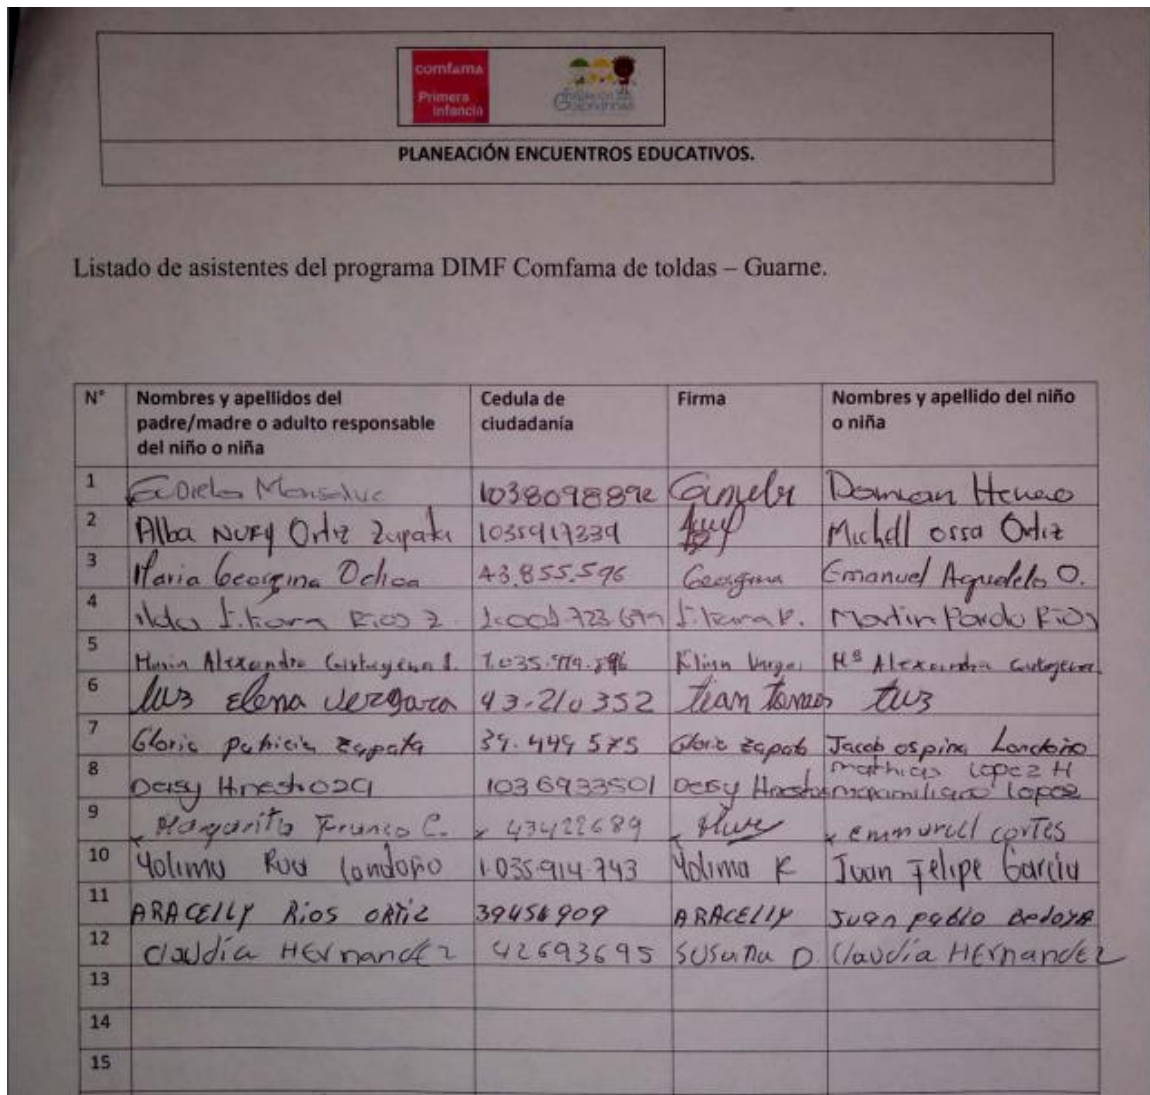 comfama
Primera
infancia
PLANEACIÓN ENCUENTROS EDUCATIVOS.
Listado de asistentes del programa DIMF Comfama de toldas – Guarne.
N° Nombres y apellidos del padre/madre o adulto responsable del niño o niña Cedula de ciudadanía Firma Nombres y apellido del niño o niña
1 Monsalve 1038098892 Damian Henao
2 Alba Nury Ortiz Zapata 1035917339 Michell ossa Ortiz
3 Maria Georgina Ochoa 43.855.596 Georgina Emanuel Agudelo O.
4 Rios Z. Martin Pardo Rios
5 Maria Alexandra Vargas Mª Alexandra
6 luz Elena Vergara 43.210352 luz
7 Gloria Patricia Zapata 39.449 575 Gloria Zapata Jacob ospina Londoño
8 Deisy Hinestroza 1036933501 Deisy mathias Lopez H
maximiliano lopez
9 Margarita Franco C. 43422689 emmanuell cortes
10 Yolima Londoño 1.035.914.743 Yolima R Juan Felipe Garcia
11 ARACELLY Rios ORTIZ 39454909 ARACELLY Juan pablo Bedoya
12 Claudía HErnandEz 42693695 Susana D. Claudía HErnandEz
13
14
15